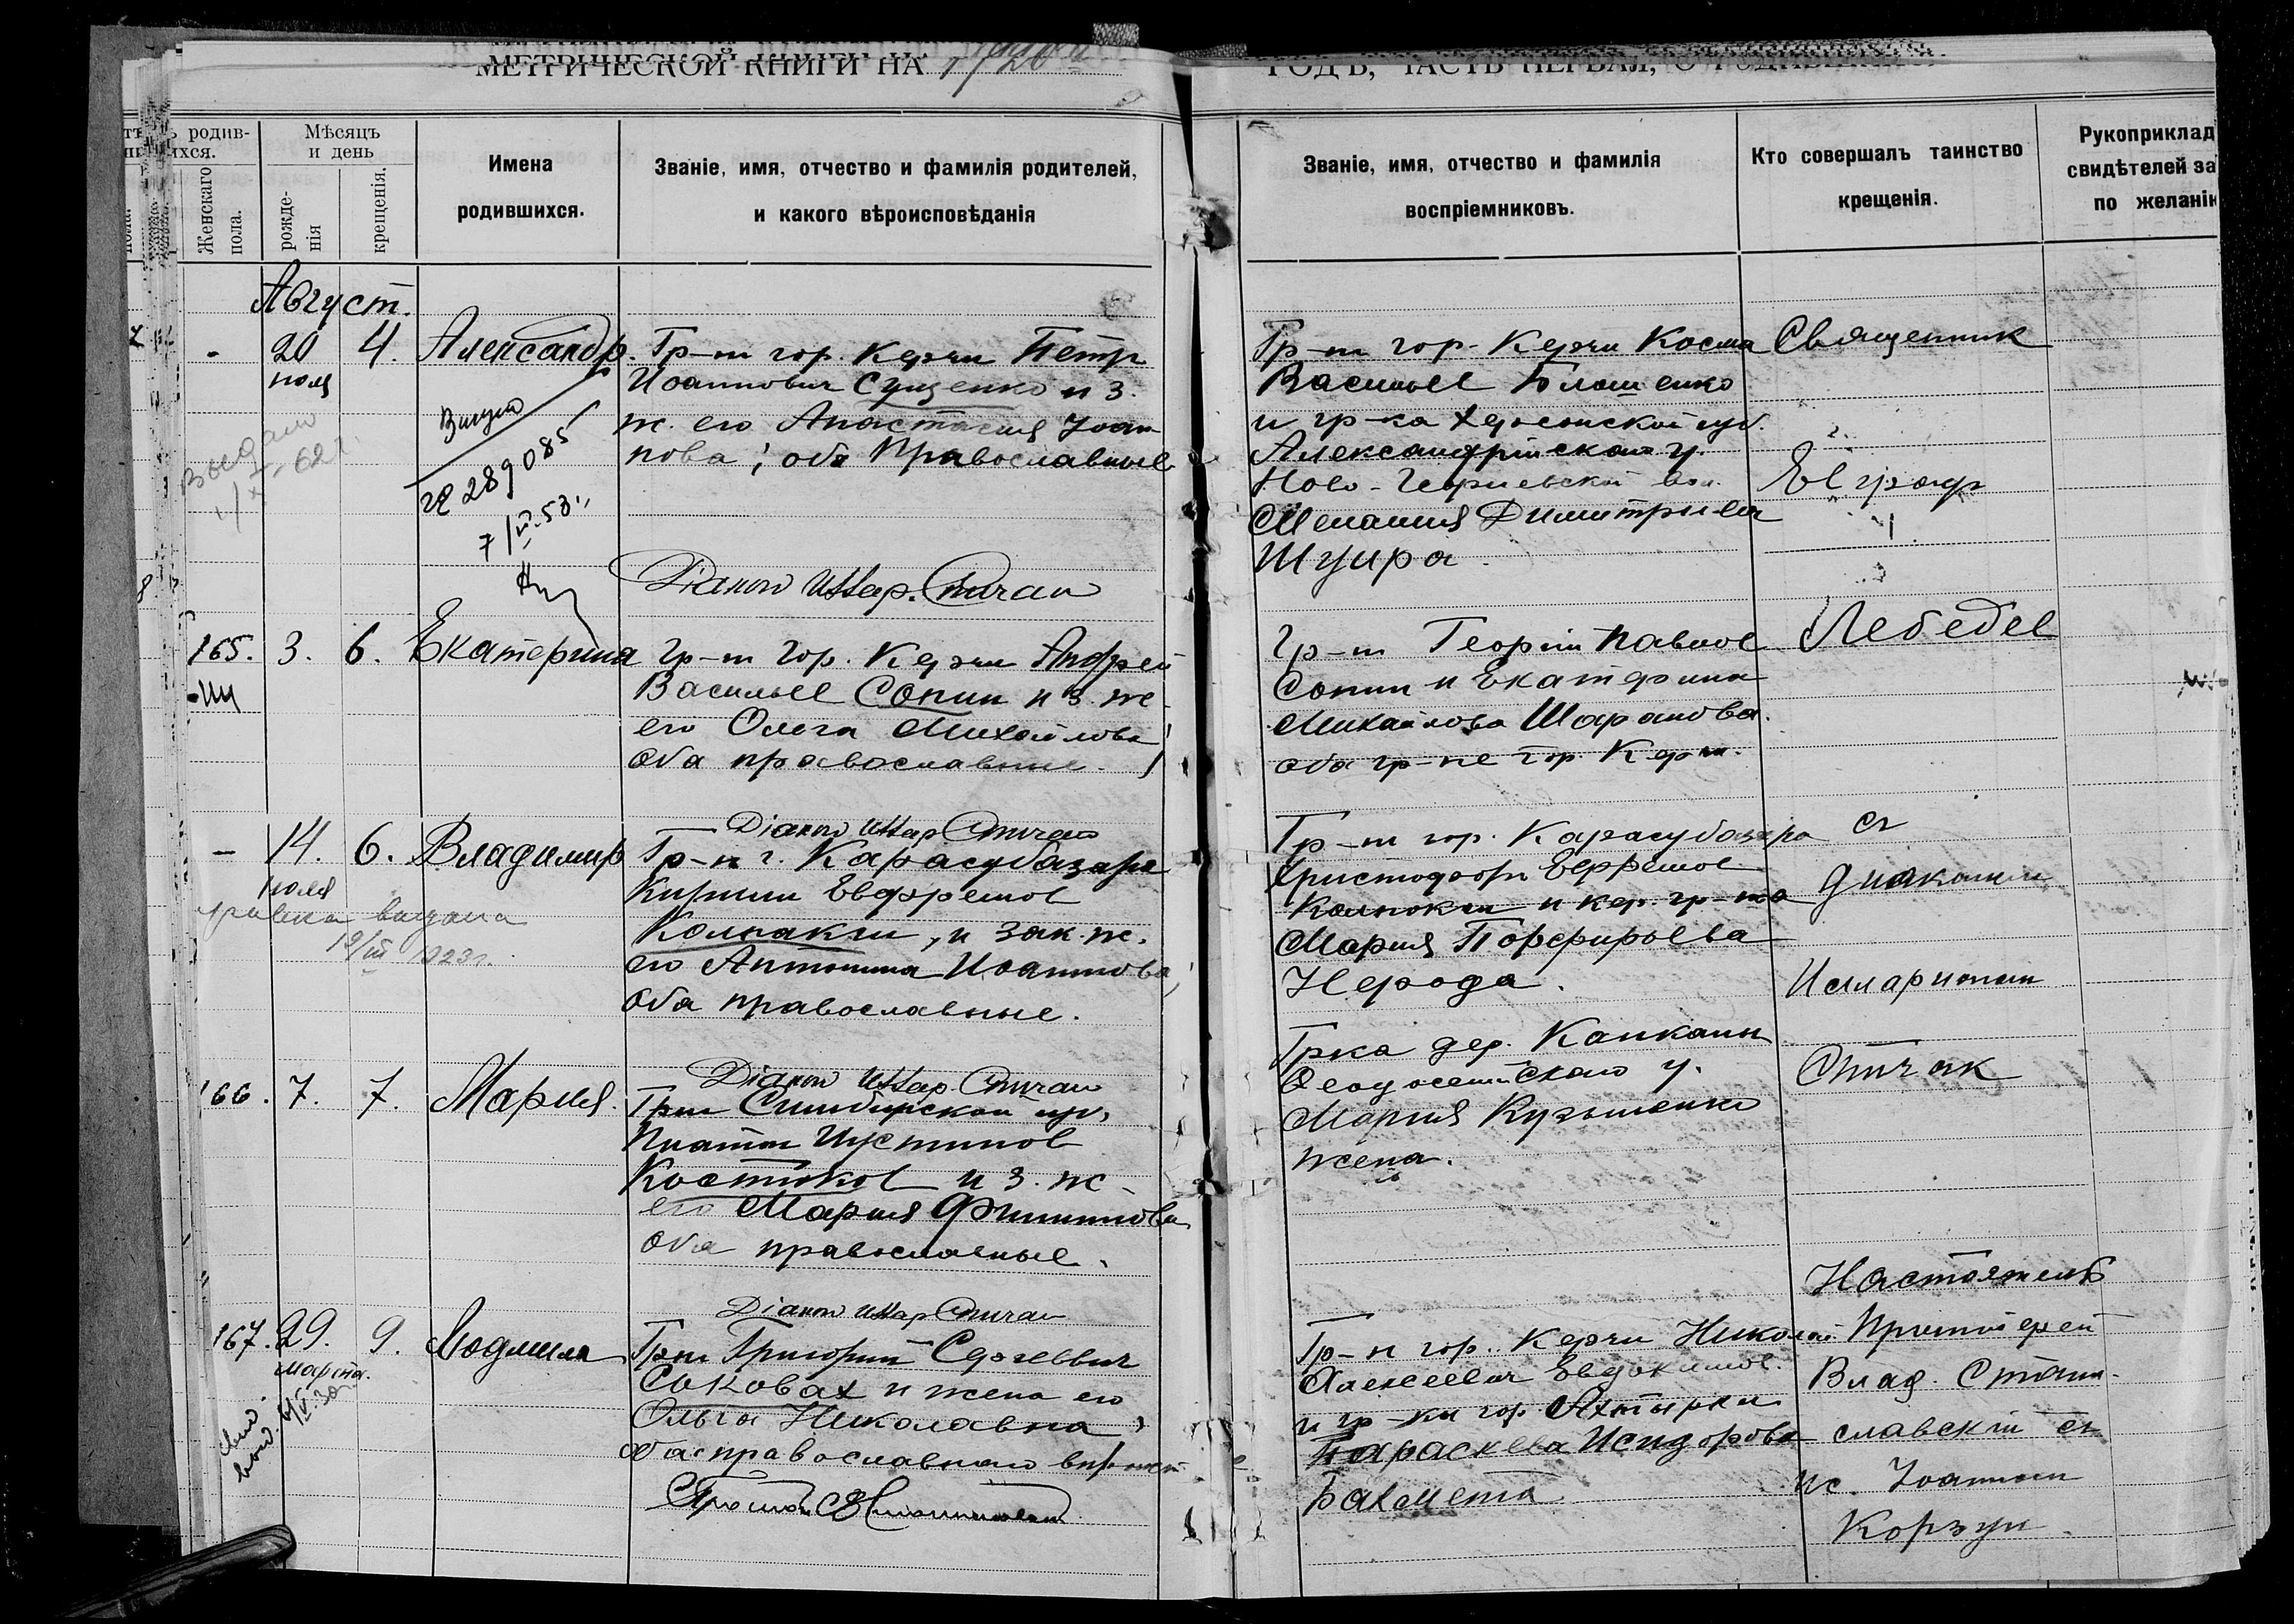 МЕТРИЧЕСКОЙ КНИГИ НА 1920
ГОДЪ, ЧАСТЬ ПЕРВАЯ, О РОДИВШИХСЯ
родив-
ихся.
Женскаго пола.
Мѣсяцъ и день
рожде-
нія
крещенія.
Имена
родившихся.
Званіе, имя, отчество и фамилія родителей,
и какого вѣроисповѣданія
Званіе, имя, отчество и фамилія
воспріемниковъ.
Кто совершалъ таинство
крещенія.
Рукоприклад
свидѣтелей за
по желанію
Август.
- 20 4. Александр.
июля
Выдано
289085
7/
Гр-н гор. Керчи Петр
Иоаннович Сущенко и з.
ж. его Анастасия Иоан-
нова; оба Православные
Діакон Илар. Спичак
Гр-н гор. Керчи Косма
Васильев
и гр-ка Херсонской губ.
Александрийского у.
Ново-Георгиевской вол.
Мелания Димитриева
Шуира.
Священник
Евграф
Лебедев
165. 3. 6. Екатерина
гр-н гор. Керчи Андрей
Васильев Сопин и з. ж-
его Ольга Михайлова;
оба православные.
Діакон Илар Спичак
Гр-н Георгій Павлов
Сопин и Екатерина
Михайлова Шарапова.
оба гр-не гор. Керчи.
- 14. 6. Владимир
июля
выдана
1923 г.
Гр-н г. Карасубазара
Кирилл Евфремов
Колпакчи, и зак. ж.
его Антонина Иоаннова,
оба православные.
Діакон Илар Спичак
Гр-н гор. Карасубазара
Христофор Евфремов
Колпакчи и кер. гр-ка
Мария Порфирьева
Нерода.
с
диаконом
Иларионом
Спичак
166. 7. 7. Мария.
Грн Симбирской губ.
Платон Иустинов
Костюков и з. ж-
его Мария Филиппова
оба православные.
Діакон Илар Спичак
Грка дер. Капканы
Феодосийского у.
Мария Кузьменко
жена.
167. 29. 9. Людмила
марта.
Грн Григорий Сергеевич
Соковах и жена его
Ольга Николавна,
оба православного
Гр-н гор. Керчи Николай
Алексеевич Евдокимов
и гр-ки гор. Ахтырки
Параскева Исидорова
Бахмета
Настоятель
Протоиерей
Влад. Стани-
славскій с
пс. Иоанном
Корзун.